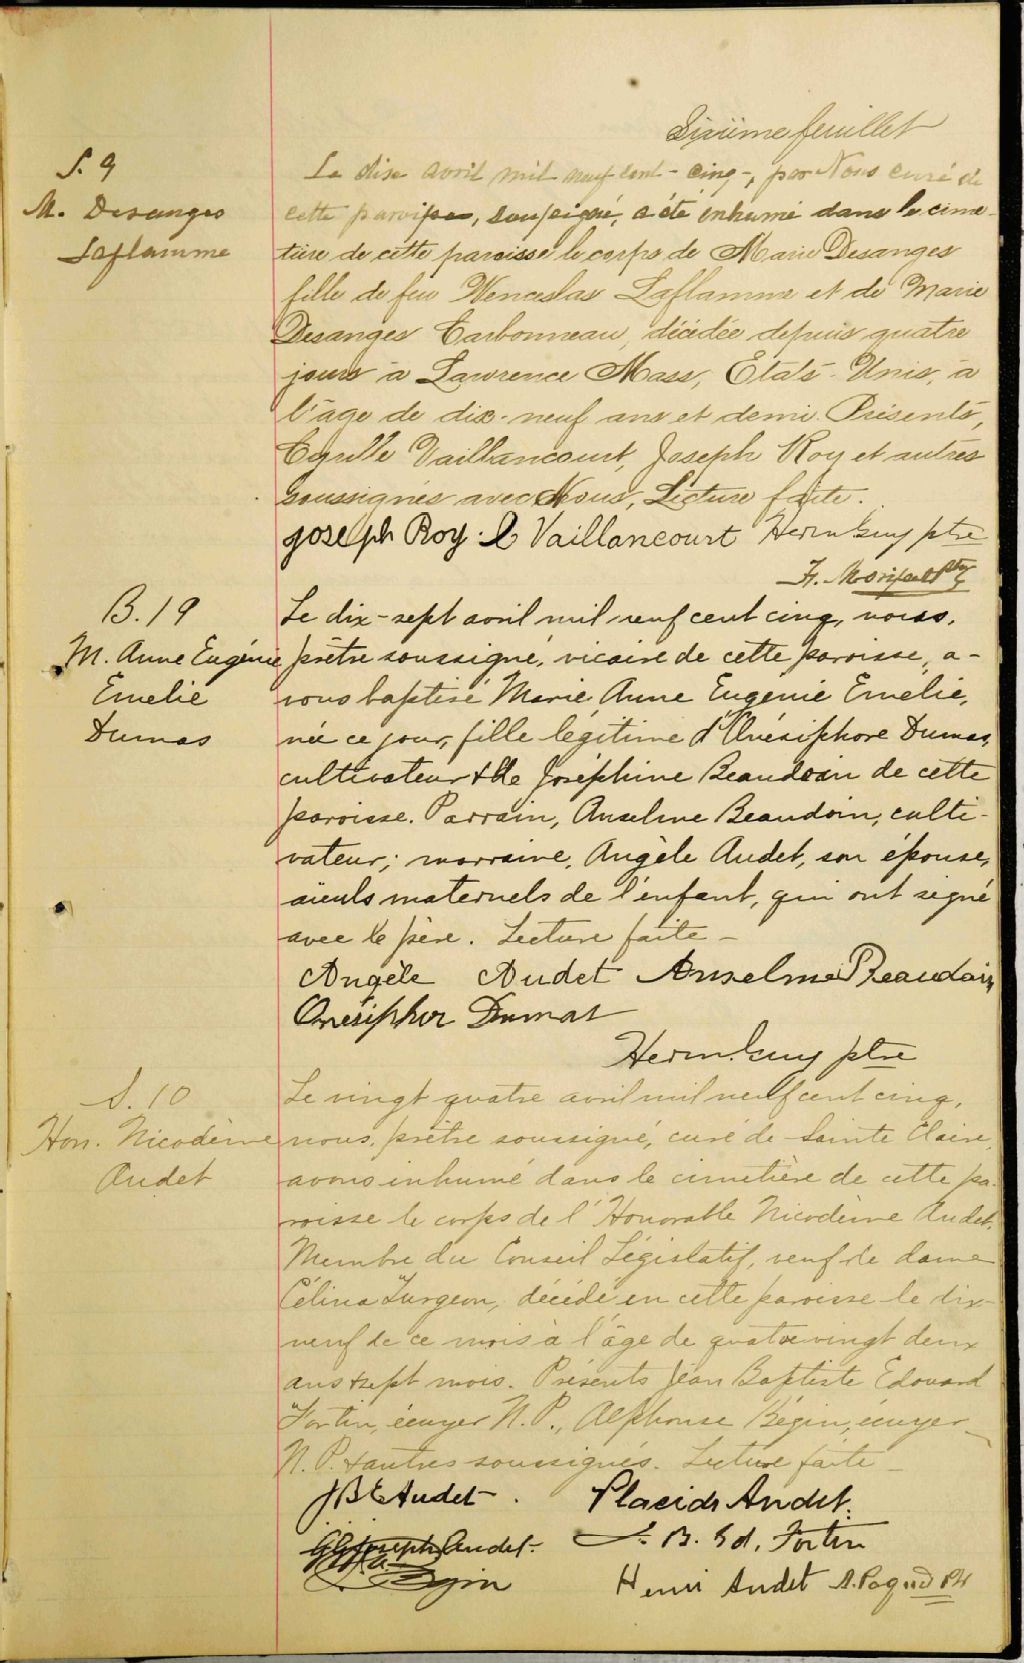 Sixième feuillet
S. 9
M. Desanges
Laflamme
Le dix avril mil neuf cent-cinq-, par Nous curé de
cette paroisse, soussigné, a été inhumé dans le cime-
tière de cette paroisse le corps de Marie Desanges
fille de feu Wenceslas Laflamme et de Marie
Desanges Carbonneau, décédée depuis quatre
jours à Lawrence Mass, États-Unis, à
l'âge de dix-neuf ans et demi. Présents,
Cyrille Vaillancourt, Joseph Roy et autres
soussignés avec Nous, Lecture faite.
Joseph Roy. C Vaillancourt Herm Guy ptre
B. 19
M. Anne Eugénie
Emelie
Dumas
Le dix-sept avril mil neuf cent cinq, nous,
prêtre soussigné, vicaire de cette paroisse, a-
vons baptisé Marie Anne Eugénie Emélie,
née ce jour, fille légitime d'Onésiphore Dumas,
cultivateur & de Joséphine Beaudoin de cette
paroisse. Parrain, Anselme Beaudoin, culti-
vateur; marraine, Angèle Audet, son épouse,
aïeuls maternels de l'enfant, qui ont signé
avec le père. Lecture faite-
Angèle Audet Anselme Beaudoin
Onésiphor Dumas
Herm. Guy ptre
S. 10
Hon. Nicodème
Audet
Le vingt quatre avril mil neuf cent cinq,
nous, prêtre soussigné, curé de Sainte Claire,
avons inhumé dans le cimetière de cette pa-
roisse le corps de l'Honorable Nicodème Audet,
Membre du Conseil Législatif, veuf de dame
Célina Turgeon, décédé en cette paroisse le dix-
neuf de ce mois à l'âge de quatre vingt deux
ans & sept mois. Présents Jean Baptiste Edouard
Fortin, écuyer N. P., Alphonse Bégin, écuyer
N. P. & autres soussignés. Lecture faite-
J B E Audet. Placide Audet.
Joseph Audet. J. B. Ed. Fortin
Bégin Henri Audet